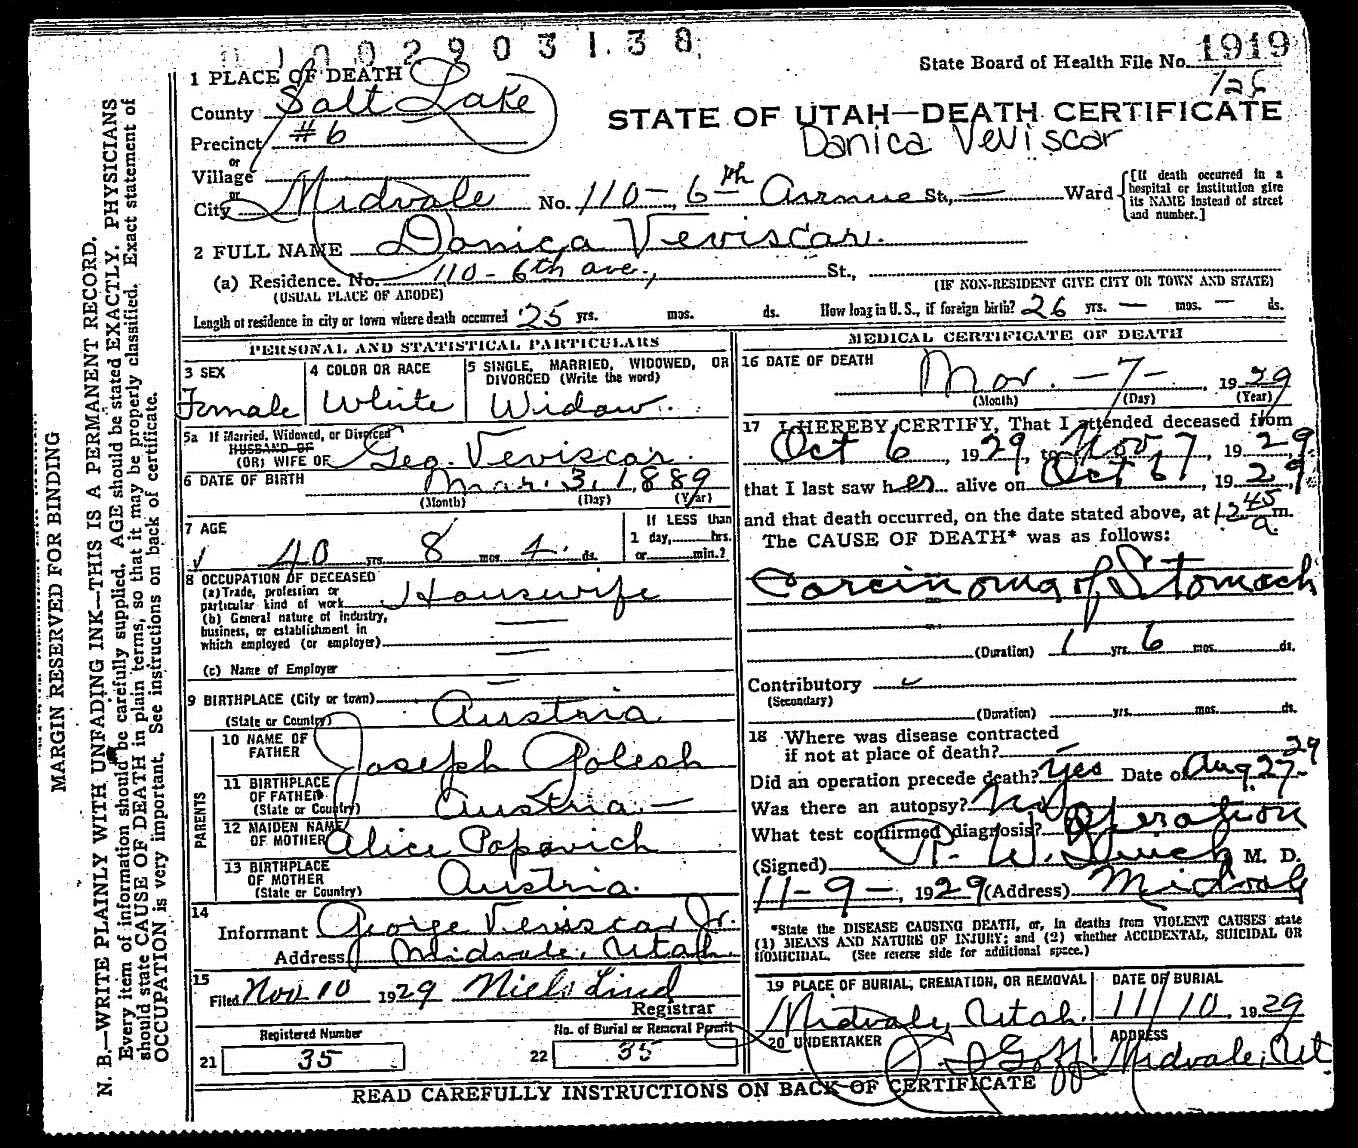 1002903138
State Board of Health File No. 1919
126
1 PLACE OF DEATH
County Salt Lake
STATE OF UTAH—DEATH CERTIFICATE
Precinct #6
Danica Veviscar
or
Village
or
City Midvale No. 110-6th Avenue St., — Ward {[If death occurred in a hospital or institution give its NAME instead of street and number.]
2 FULL NAME Danica Veviscar.
(a) Residence. No. 110-6th ave., St.,
(USUAL PLACE OF ABODE) (IF NON-RESIDENT GIVE CITY OR TOWN AND STATE)
Length of residence in city or town where death occurred 25 yrs. mos. ds. How long in U. S., if foreign birth? 26 yrs. — mos. — ds.
PERSONAL AND STATISTICAL PARTICULARS
3 SEX
Female
4 COLOR OR RACE
White
5 SINGLE, MARRIED, WIDOWED, OR
DIVORCED (Write the word)
Widow.
5a If Married, Widowed, or Divorced
HUSBAND OF
(OR) WIFE OF Geo. Veviscar.
6 DATE OF BIRTH Mar. 3, 1889
(Month) (Day) (Year)
7 AGE
40 yrs 8 mos. 4. ds.
If LESS than
1 day,......hrs.
or......min.?
8 OCCUPATION OF DECEASED
(a) Trade, profession or
particular kind of work Housewife
(b) General nature of industry,
business, or establishment in
which employed (or employer) —
(c) Name of Employer —
9 BIRTHPLACE (City or town)
(State or Country) Austria
PARENTS
10 NAME OF
FATHER Joseph Golesh
11 BIRTHPLACE
OF FATHER
(State or Country) Austria —
12 MAIDEN NAME
OF MOTHER Alice Popovich
13 BIRTHPLACE
OF MOTHER
(State or Country) Austria.
14
Informant George Veviscar Jr.
Address Midvale, Utah.
15
Filed Nov 10 1929 Niels Lind
Registrar
Registered Number
21 35
No. of Burial or Removal Permit
22 35
MEDICAL CERTIFICATE OF DEATH
16 DATE OF DEATH
Nov. - 7 - , 1929
(Month) (Day) (Year)
17 I HEREBY CERTIFY, That I attended deceased from
Oct 6, 1929, to Nov 7, 1929,
that I last saw her alive on Oct 6, 1929,
and that death occurred, on the date stated above, at 12 45 a m.
The CAUSE OF DEATH* was as follows:
Carcinoma of Stomach
(Duration) 1 yrs. 6 mos. ds.
Contributory
(Secondary)
(Duration) yrs. mos. ds.
18 Where was disease contracted
if not at place of death? —
Did an operation precede death? Yes Date of Aug 27-29
Was there an autopsy? No
What test confirmed diagnosis? Operation
(Signed) R. W. M. D.
11-9-, 1929 (Address) Midvale
*State the DISEASE CAUSING DEATH, or, in deaths from VIOLENT CAUSES state
(1) MEANS AND NATURE OF INJURY; and (2) whether ACCIDENTAL, SUICIDAL OR
HOMICIDAL. (See reverse side for additional space.)
19 PLACE OF BURIAL, CREMATION, OR REMOVAL
Midvale, Utah.
DATE OF BURIAL
11/10, 1929
20 UNDERTAKER
Goff
ADDRESS
Midvale, Ut
READ CAREFULLY INSTRUCTIONS ON BACK OF CERTIFICATE
MARGIN RESERVED FOR BINDING
N. B.—WRITE PLAINLY WITH UNFADING INK—THIS IS A PERMANENT RECORD.
Every item of information should be carefully supplied. AGE should be stated EXACTLY. PHYSICIANS
should state CAUSE OF DEATH in plain terms, so that it may be properly classified. Exact statement of
OCCUPATION is very important. See instructions on back of certificate.